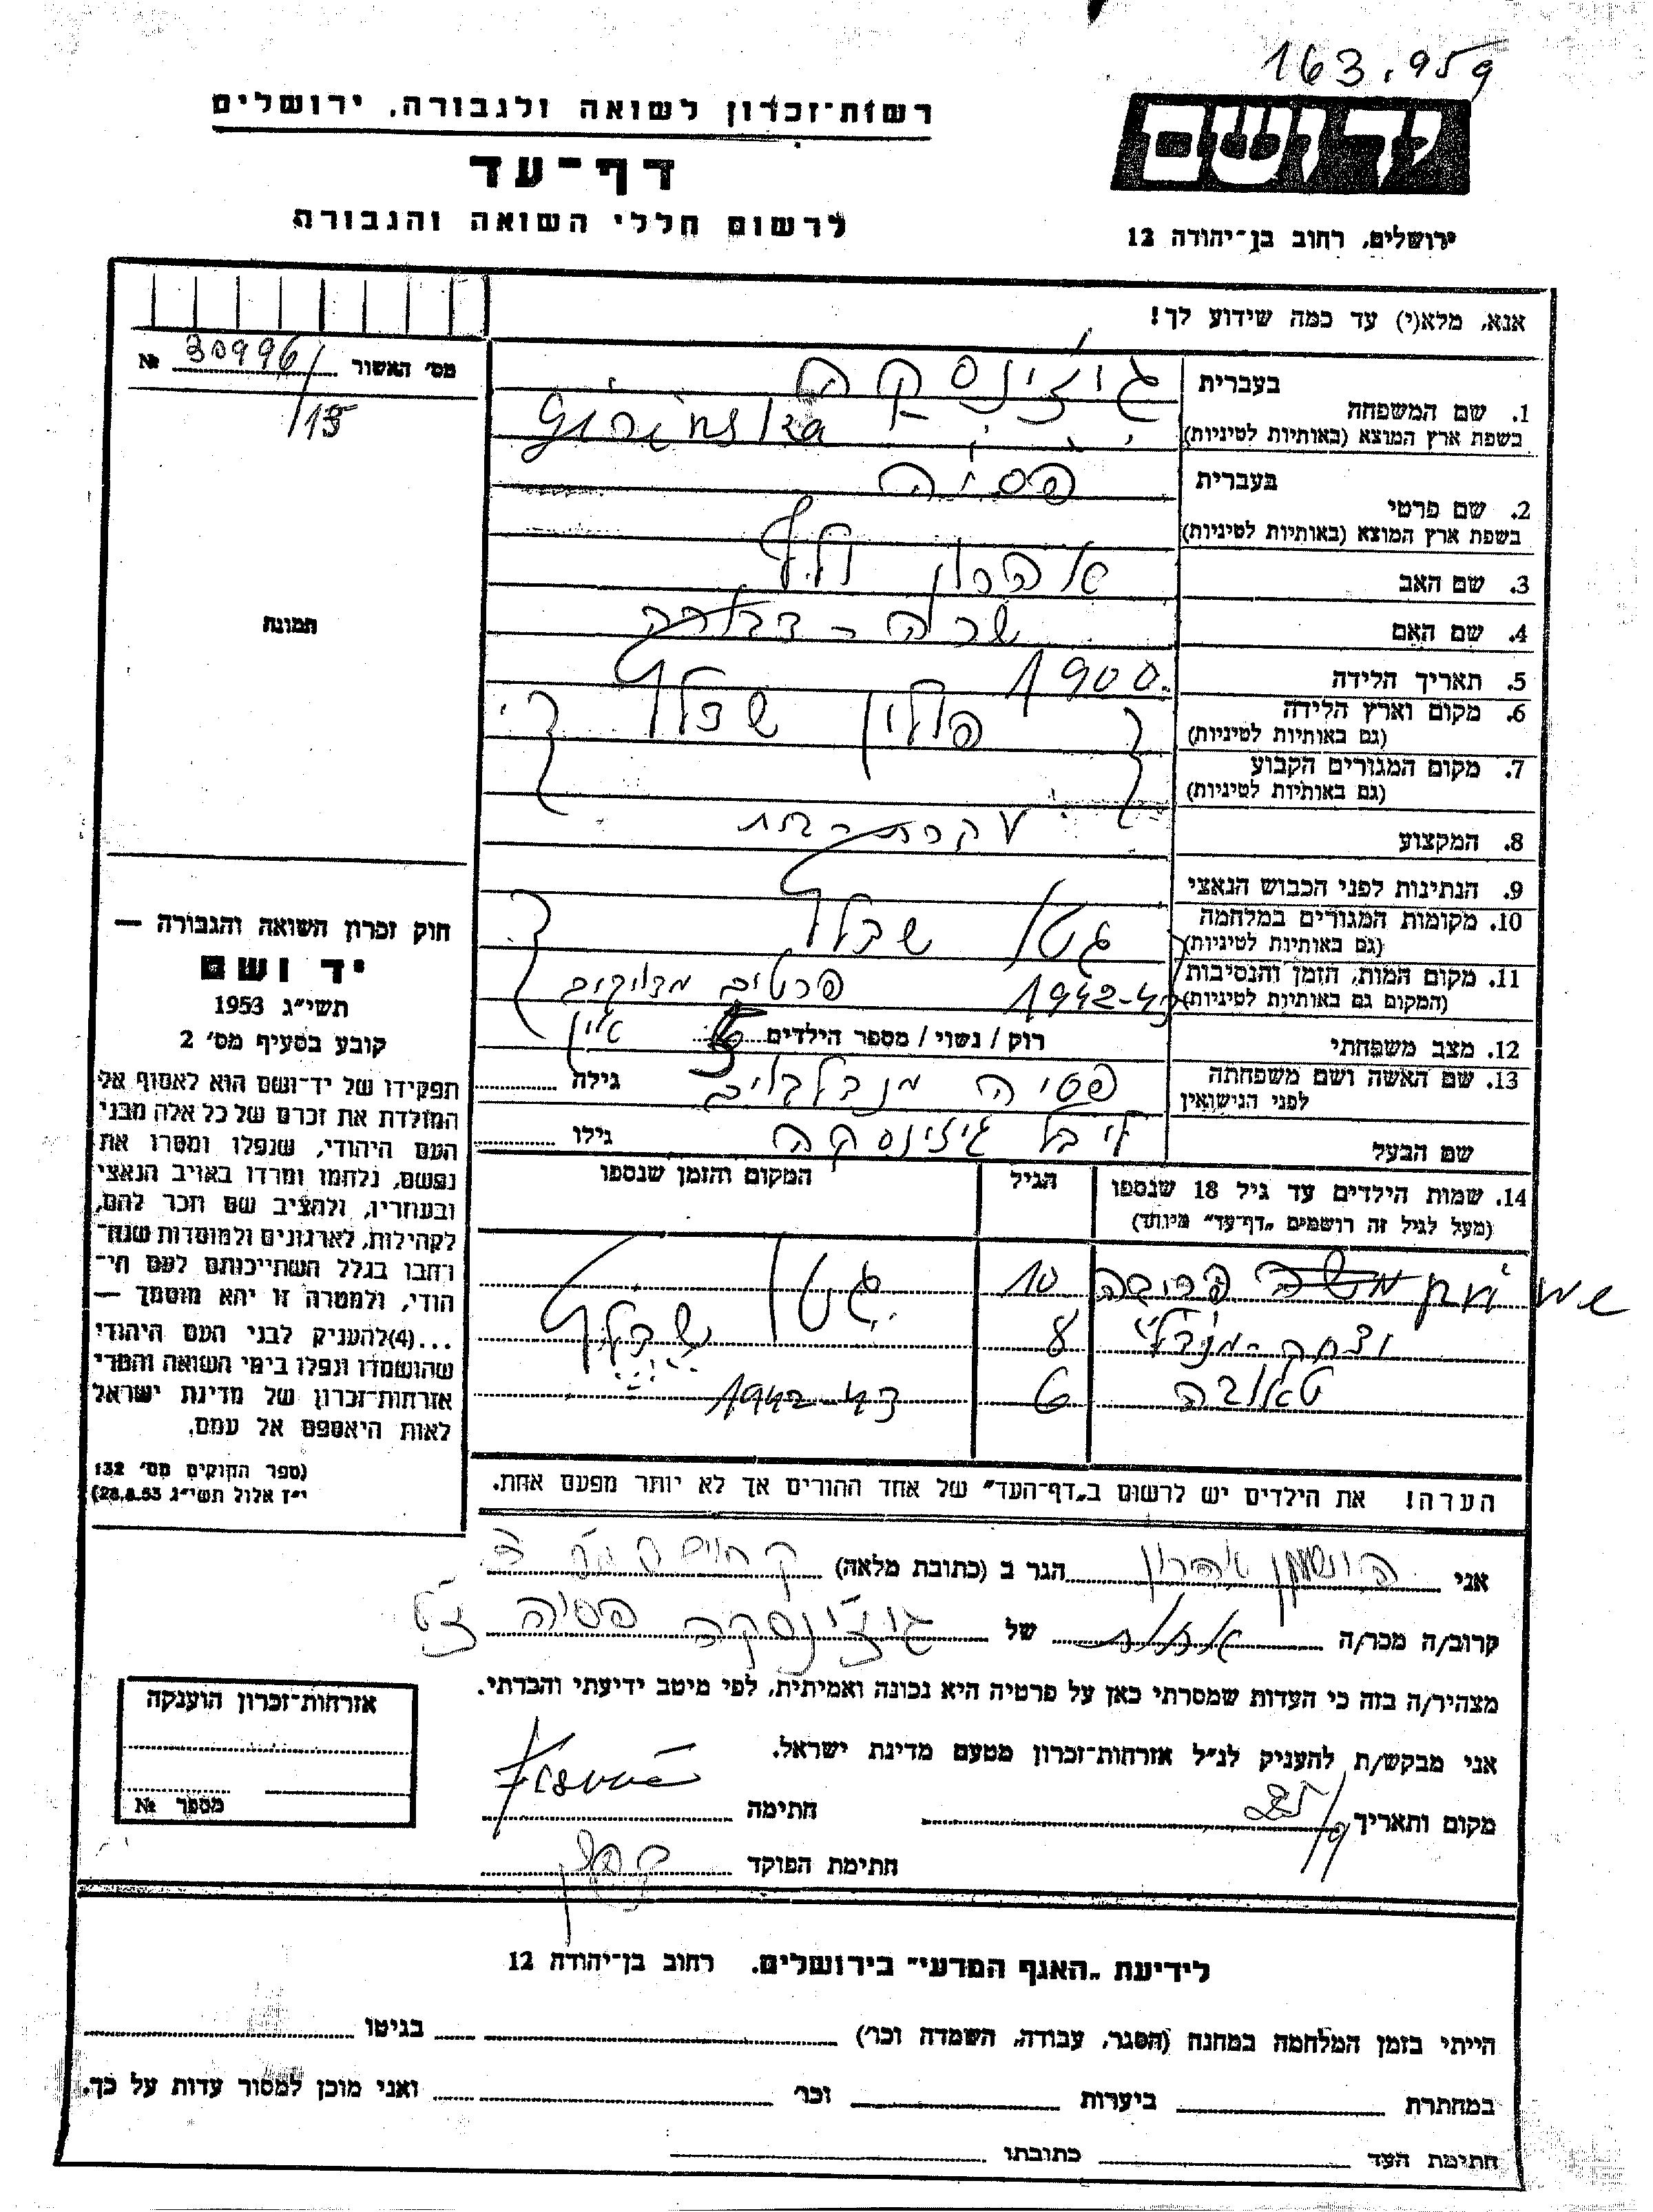 163.959
רשות־זכרון לשואה ולגבורה, ירושלים
דף־עד
לרשום חללי השואה והגבורה
יד ושם
ירושלים, רחוב בן־יהודה 12
אנא, מלא(י) עד כמה שידוע לך!
מס' האשור 30996/ №
/13
1. שם המשפחה
בעברית
בשפת ארץ המוצא (באותיות לטיניות)
2. שם פרטי
בעברית פסיה
בשפת ארץ המוצא (באותיות לטיניות)
3. שם האב אהרון
4. שם האם שרה - דבורה
5. תאריך הלידה 1900
6. מקום וארץ הלידה פולין
(גם באותיות לטיניות)
7. מקום המגורים הקבוע
(גם באותיות לטיניות)
8. המקצוע עקרת בית
9. הנתינות לפני הכבוש הנאצי
10. מקומות המגורים במלחמה גטו
(גם באותיות לטיניות)
11. מקום המות, הזמן והנסיבות 1942-43 פרטים מדויקים
(המקום גם באותיות לטיניות)
12. מצב משפחתי רוק / נשוי / מספר הילדים אין
13. שם האשה ושם משפחתה פסיה גילה
לפני הנישואין
שם הבעל גילו
14. שמות הילדים עד גיל 18 שנספו הגיל המקום והזמן שנספו
(מעל לגיל זה רושמים „דף־עד" מיוחד)
10 גטו
8
6 1942-43
הערה! את הילדים יש לרשום ב„דף־העד" של אחד ההורים אך לא יותר מפעם אחת.
תמונה
חוק זכרון השואה והגבורה —
יד ושם
תשי"ג 1953
קובע בסעיף מס' 2
תפקידו של יד־ושם הוא לאסוף אל
המולדת את זכרם של כל אלה מבני
העם היהודי, שנפלו ומסרו את
נפשם, נלחמו ומרדו באויב הנאצי
ובעוזריו, ולהציב שם וזכר להם,
לקהילות, לארגונים ולמוסדות שנח־
רבו בגלל השתייכותם לעם הי־
הודי, ולמטרה זו יהא מוסמך —
...(4)להעניק לבני העם היהודי
שהושמדו ונפלו בימי השואה והמרי
אזרחות־זכרון של מדינת ישראל
לאות היאספם אל עמם.
(ספר החוקים מס' 132
י"ז אלול תשי"ג 28.8.53)
אני אהרון הגר ב (כתובת מלאה)
קרוב/ה מכר/ה של פסיה ז"ל
מצהיר/ה בזה כי העדות שמסרתי כאן על פרטיה היא נכונה ואמיתית, לפי מיטב ידיעתי והכרתי.
אני מבקש/ת להעניק לנ"ל אזרחות־זכרון מטעם מדינת ישראל.
מקום ותאריך חתימה
חתימת הפוקד
אזרחות־זכרון הוענקה
מספר №
לידיעת „האגף המדעי" בירושלים. רחוב בן־יהודה 12
הייתי בזמן המלחמה במחנה (הסגר, עבודה, השמדה וכו') בגיטו
במחתרת ביערות וכו' ואני מוכן למסור עדות על כך.
חתימת העד כתובתו